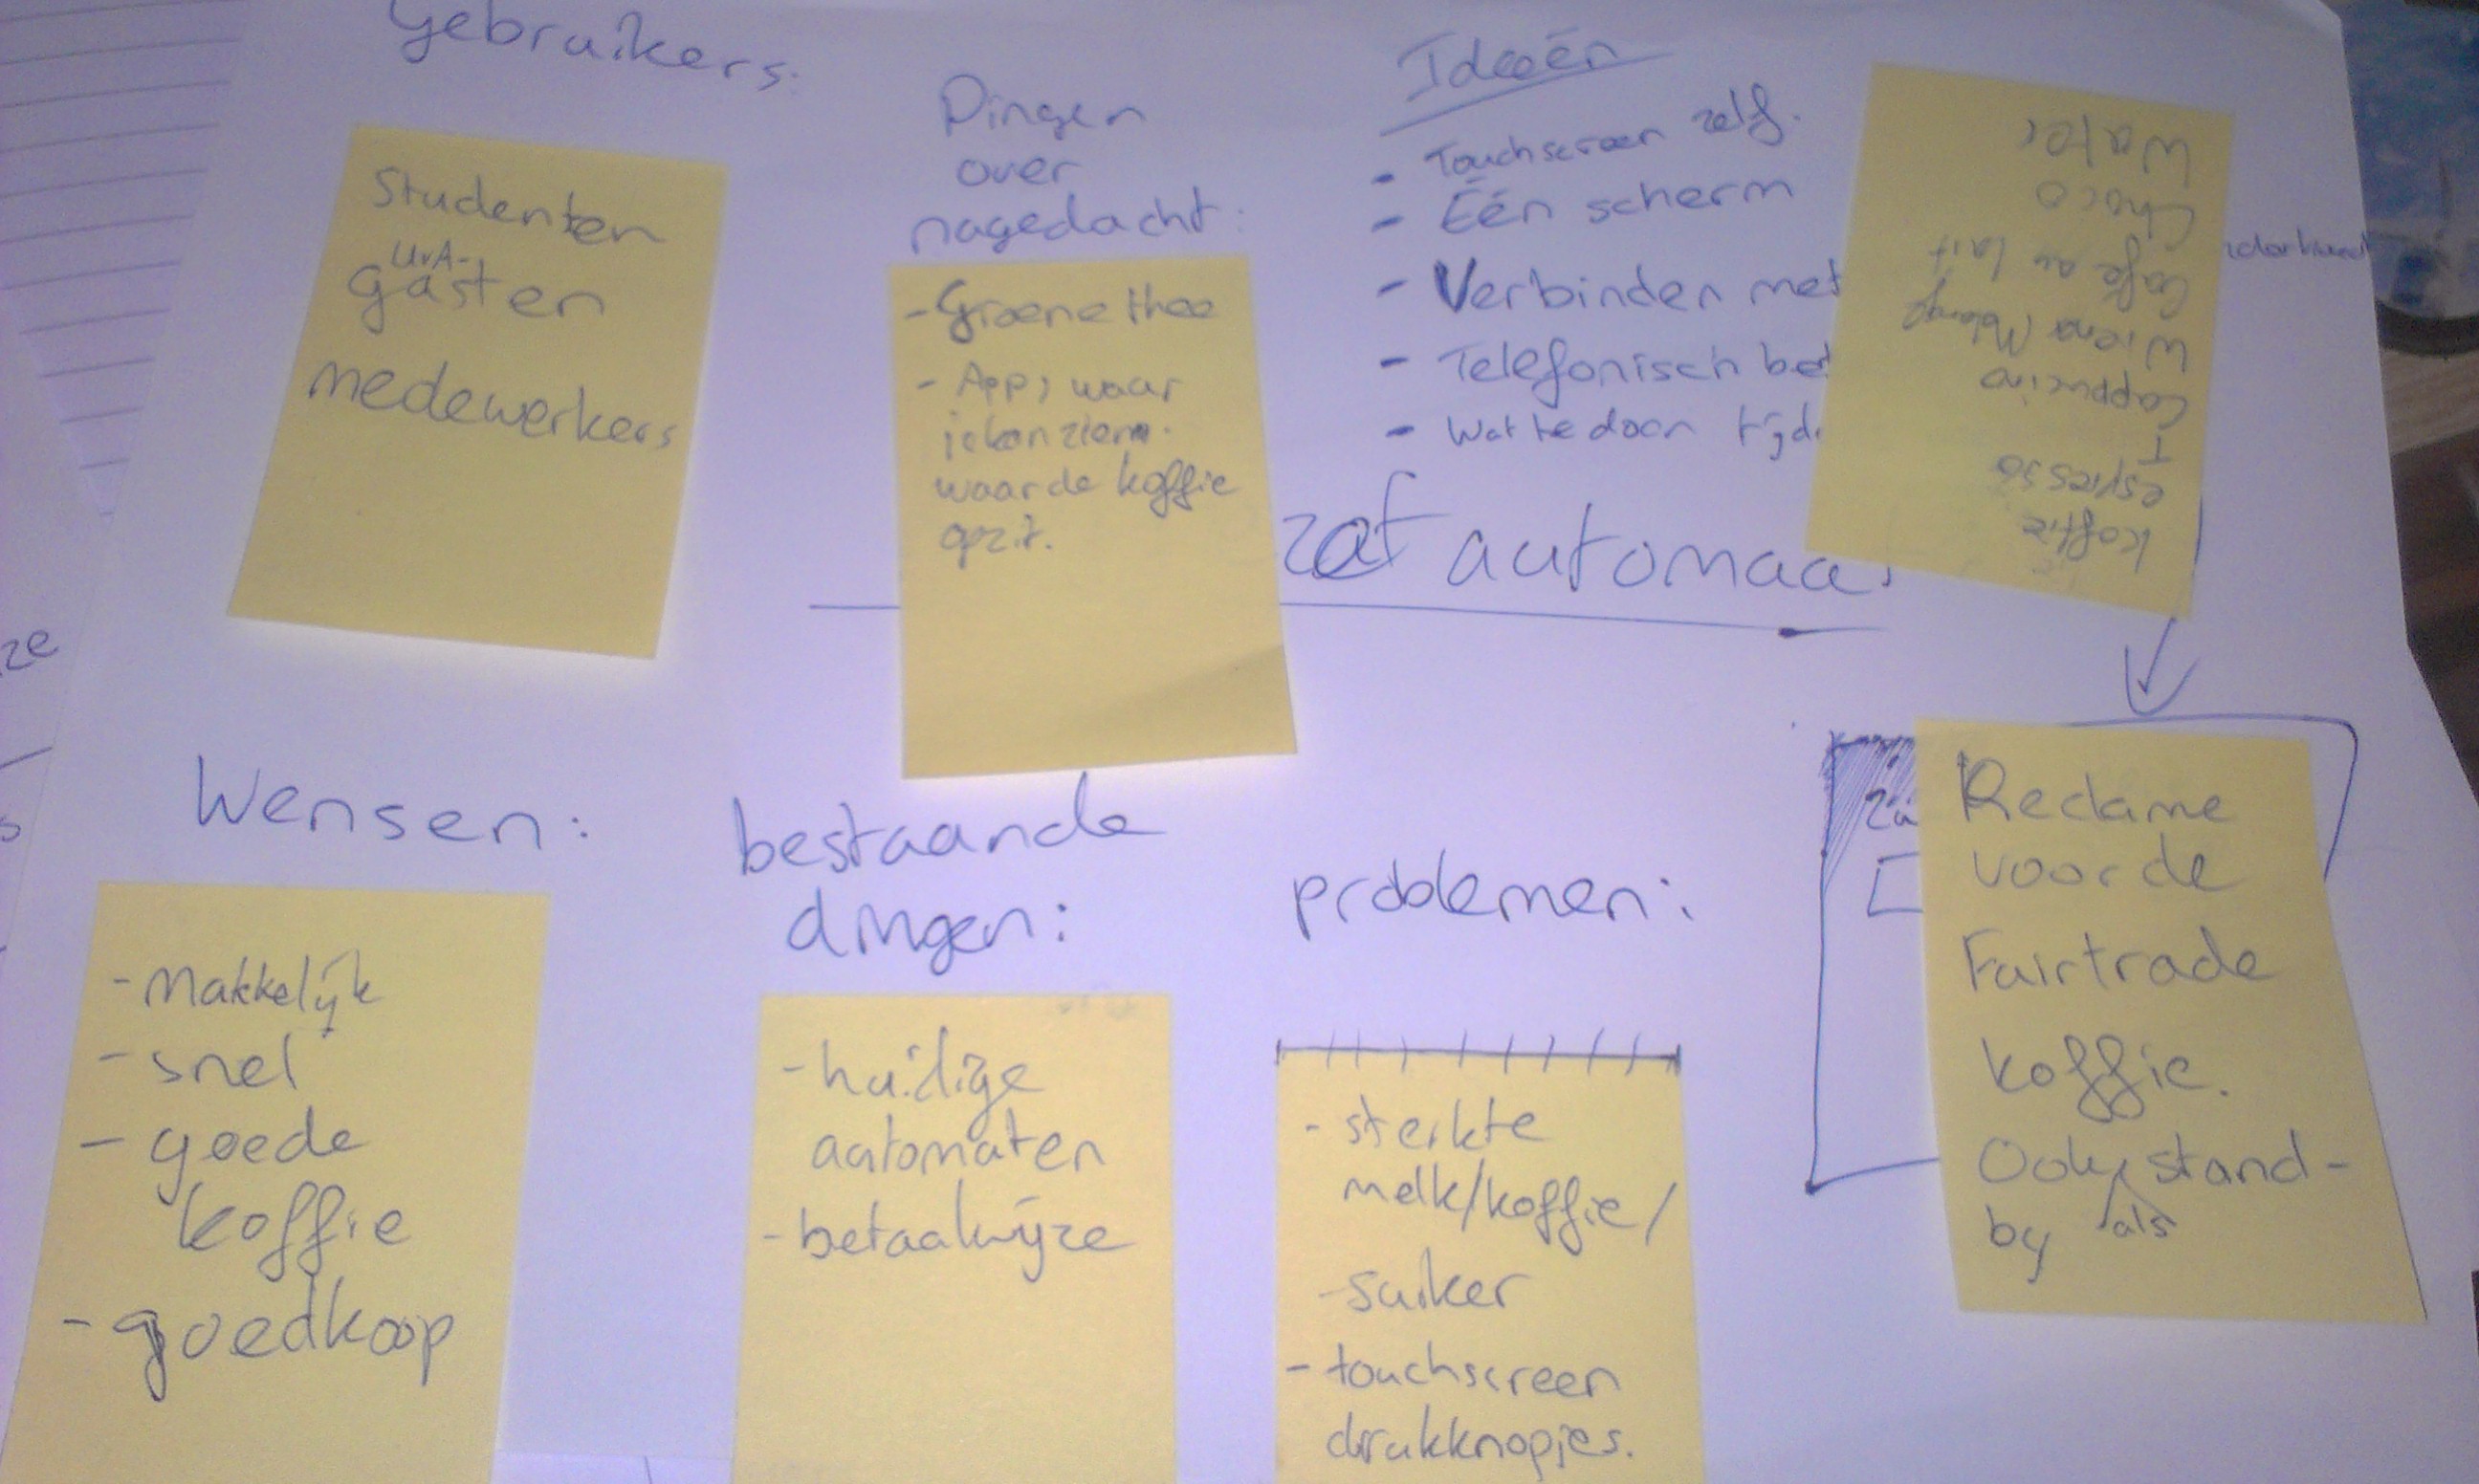 Gebruikers:
Studenten
UvA-
gasten
medewerkers
Dingen
over
nagedacht:
- Groene thee
- App, waar
je kan zien
waar de koffie
op zit.
Ideeën
- Touchscreen zelf.
- Één scherm
- Verbinden met
- Telefonisch
- Wat te doen
automaa
koffie
espresso
T
Cappucino
Wiener Melange
Cafe au lait
Choco
Water
Wensen:
- Makkelijk
- snel
- goede
koffie
- goedkoop
bestaande
dingen:
- huidige
automaten
- betaalwijze
problemen:
- sterkte
melk/koffie/
- suiker
- touchscreen
drukknopjes.
Reclame
voor de
Fairtrade
koffie.
Ook stand-
by als
ze
s